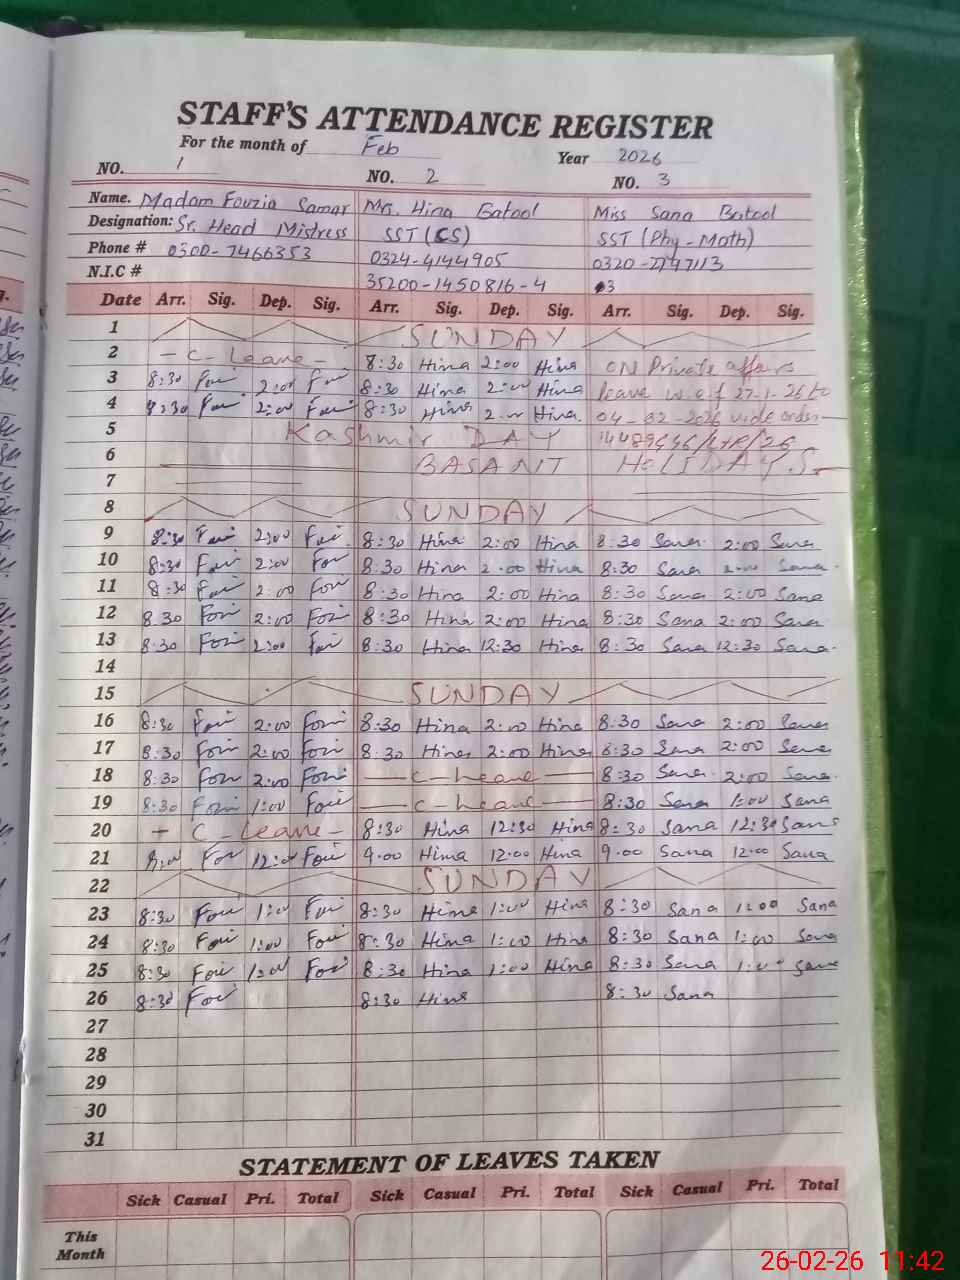 STAFF'S ATTENDANCE REGISTER
For the month of Feb Year 2026
NO. 1 NO. 2 NO. 3
Name. Madam Fouzia Samar Mrs. Hina Batool Miss Sana Batool
Designation: Sr. Head Mistress SST (CS) SST (Phy-Math)
Phone # 0300-7466353 0324-4144905 0320-
N.I.C # 35200-1450816-4
Date Arr. Sig. Dep. Sig. Arr. Sig. Dep. Sig. Arr. Sig. Dep. Sig.
1 SUNDAY
2 - C-Leave - 8:30 Hina 2:00 Hina ON Private affairs
3 8:30 2:00 8:30 Hina 2:00 Hina leave w.e.f 27-1-26 to
4 8:30 2:00 8:30 Hina 2:00 Hina. 04-02-2026 vide order
5 Kashmir DAY
6 BASANT HOLIDAYS
7
8 SUNDAY
9 8:30 2:00 8:30 Hina 2:00 Hina 8:30 Sana 2:00 Sana
10 8:30 2:00 8:30 Hina 2:00 Hina 8:30 Sana 2:00 Sana
11 8:30 2:00 8:30 Hina 2:00 Hina 8:30 Sana 2:00 Sana
12 8:30 2:00 8:30 Hina 2:00 Hina 8:30 Sana 2:00 Sana
13 8:30 2:00 8:30 Hina 12:30 Hina 8:30 Sana 12:30 Sana
14
15 SUNDAY
16 8:30 2:00 8:30 Hina 2:00 Hina 8:30 Sana 2:00 Sana
17 8:30 2:00 8:30 Hina 2:00 Hina 8:30 Sana 2:00 Sana
18 8:30 2:00 — C-Leave — 8:30 Sana 2:00 Sana
19 8:30 1:00 — C-Leave — 8:30 Sana 1:00 Sana
20 - C-Leave - 8:30 Hina 12:30 Hina 8:30 Sana 12:30 Sana
21 12:00 9:00 Hina 12:00 Hina 9:00 Sana 12:00 Sana
22 SUNDAY
23 8:30 1:00 8:30 Hina 1:00 Hina 8:30 Sana 1:00 Sana
24 8:30 1:00 8:30 Hina 1:00 Hina 8:30 Sana 1:00 Sana
25 8:30 1:00 8:30 Hina 1:00 Hina 8:30 Sana 1:00 Sana
26 8:30 8:30 Hina 8:30 Sana
27
28
29
30
31
STATEMENT OF LEAVES TAKEN
Sick Casual Pri. Total Sick Casual Pri. Total Sick Casual Pri. Total
This
Month
26-02-26 11:42